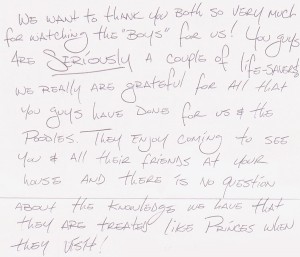 We want to thank you both so very much
for watching the "Boys" for us! You guys
are Seriously a couple of life-savers
We really are grateful for all that
you guys have done for us & the
Poodles. They enjoy coming to see
you & all their friends at your
house and there is no question
about the knowledge we have that
they are treated like Princes when
they visit!